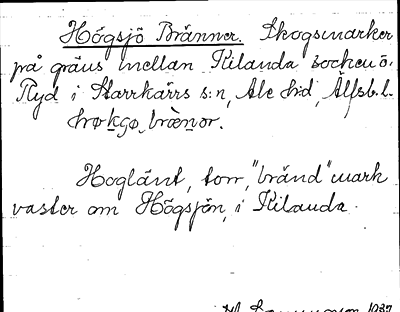 Högsjö Bränner. Skogsmarker
på gräns mellan Kilanda socken o.
Ryd i Starrkärrs s:n, Ale h:d, Älfsb.l.
Hoglänt, torr, "bränd" mark
väster om Högsjön, i Kilanda.
1937